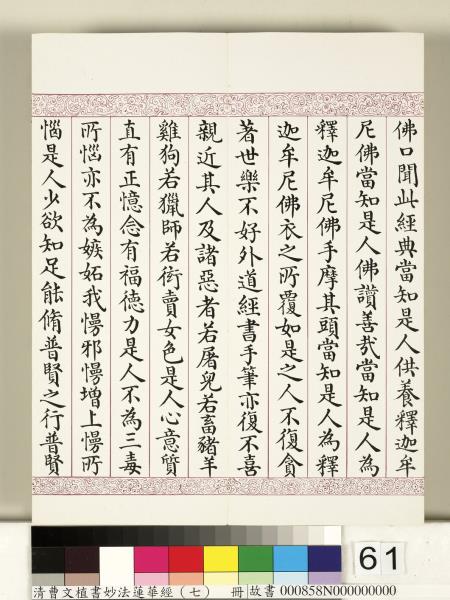 佛口聞此經典當知是人供養釋迦牟
尼佛當知是人佛讚善哉當知是人為
釋迦牟尼佛手摩其頭當知是人為釋
迦牟尼佛衣之所覆如是之人不復貪
著世樂不好外道經書手筆亦復不喜
親近其人及諸惡者若屠兒若畜豬羊
雞狗若獵師若衒賣女色是人心意質
直有正憶念有福德力是人不為三毒
所惱亦不為嫉妬我慢邪慢增上慢所
惱是人少欲知足能脩普賢之行普賢
61
清曹文植書妙法蓮華經（七） 冊 故書 000858N000000000